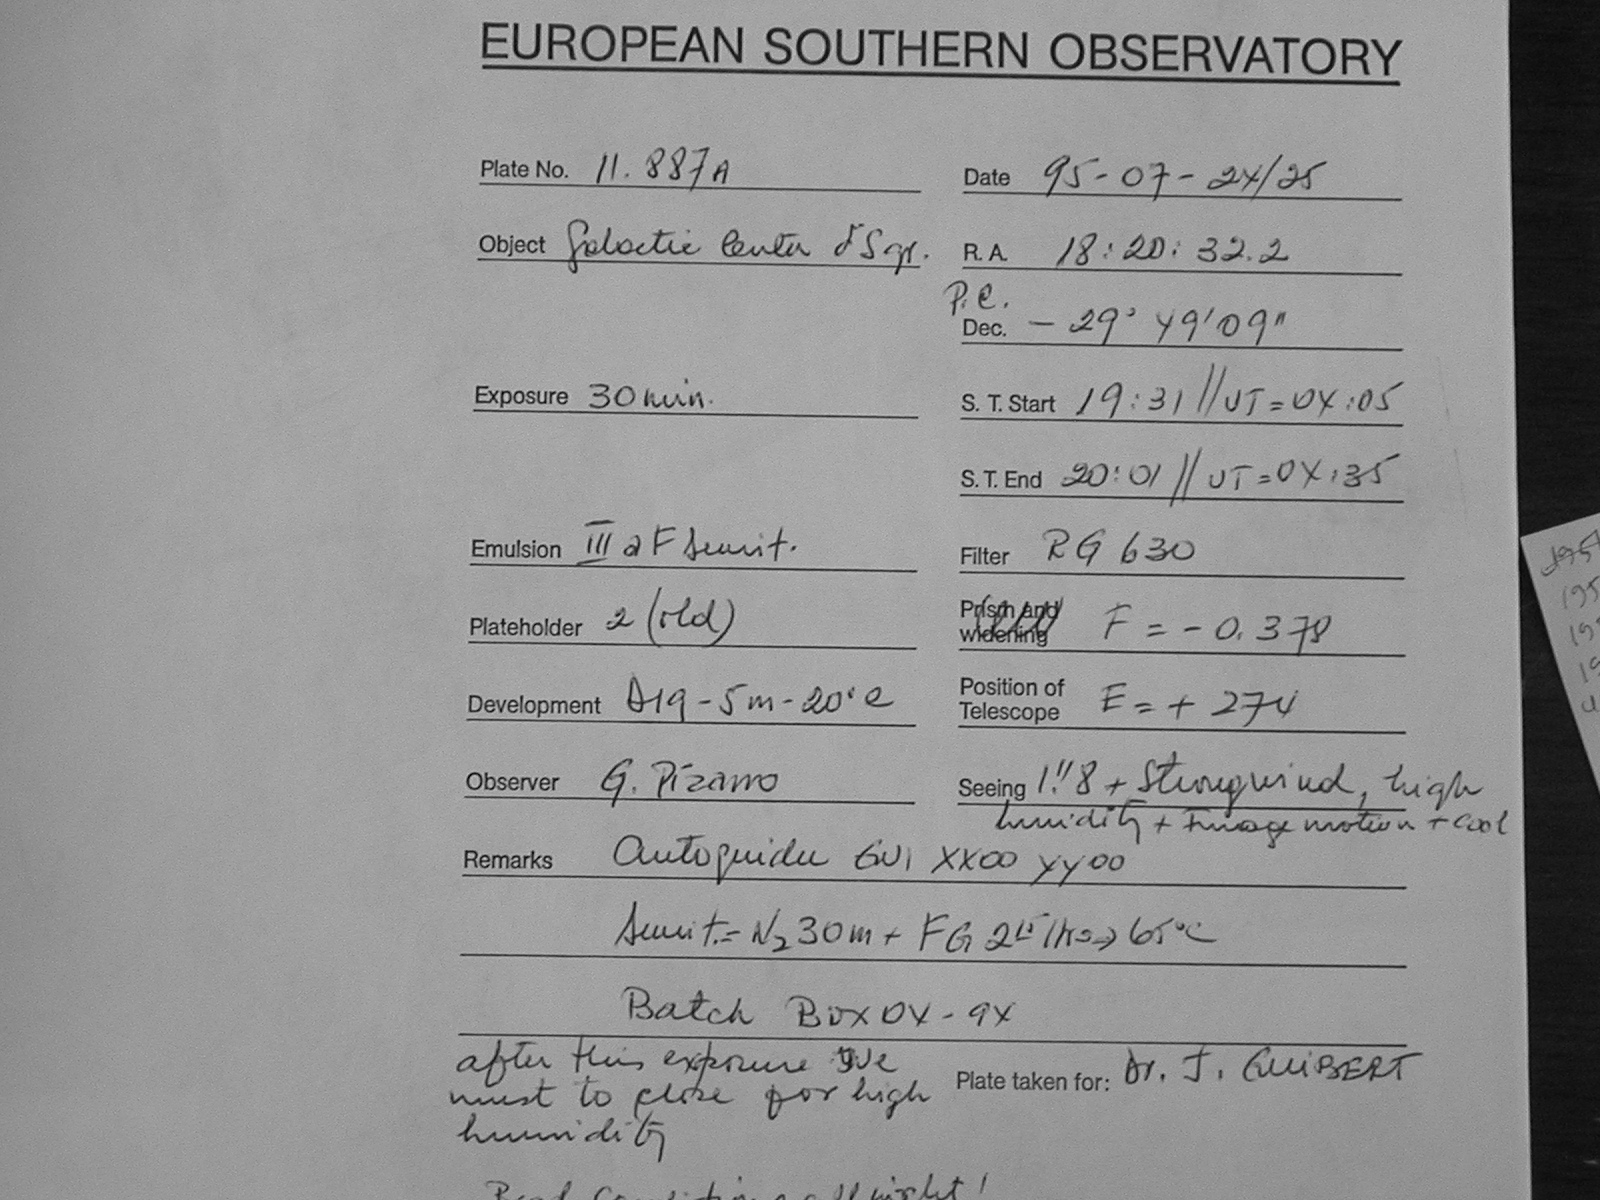 EUROPEAN SOUTHERN OBSERVATORY
Plate No. 11.887A
Date 95-07-24/25
Object Galactic Center δ Sgr.
R. A. 18:20:32.2
P.C.
Dec. - 29° 49' 09"
Exposure 30 min.
S. T. Start 19:31 // UT = 04:05
S. T. End 20:01 // UT = 04:35
Emulsion III a F Sensit.
Filter RG 630
Plateholder 2 (old)
Prism and widening F = - 0.378
Development D19 - 5m - 20°C
Position of Telescope E = + 274
Observer G. Pizarro
Seeing 1".8 + Strong wind, high
humidity + Image motion + cool
Remarks Autoguider GV1 XX00 YY00
Sensit. = N2 30m + FG 65°C
Batch Box 04 - 94
after this exposure we
must to close for high
humidity
Plate taken for: Dr. J. GUIBERT
Bad Conditions all night!